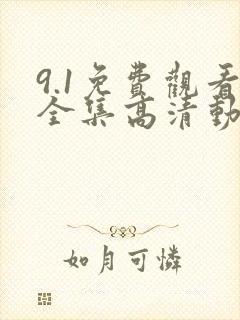 9.1免費觀看
全集高清動
如月可憐